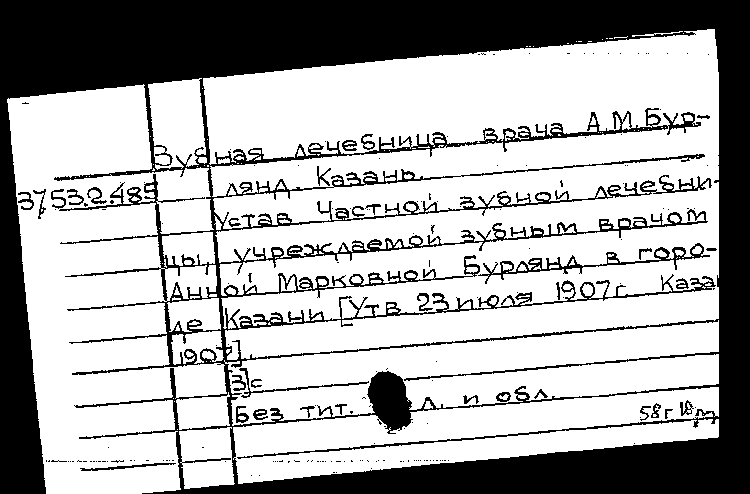 Зубная лечебница врача А.М.Бур-
37/53.2.485 лянд. Казань.
Устав Частной зубной лечебни-
цы, учреждаемой зубным врачом
Анной Марковной Бурлянд в горо-
де Казани [Утв. 23 июля 1907г. Каза
1907].
[3]с
Без тит. л. и обл.
58г